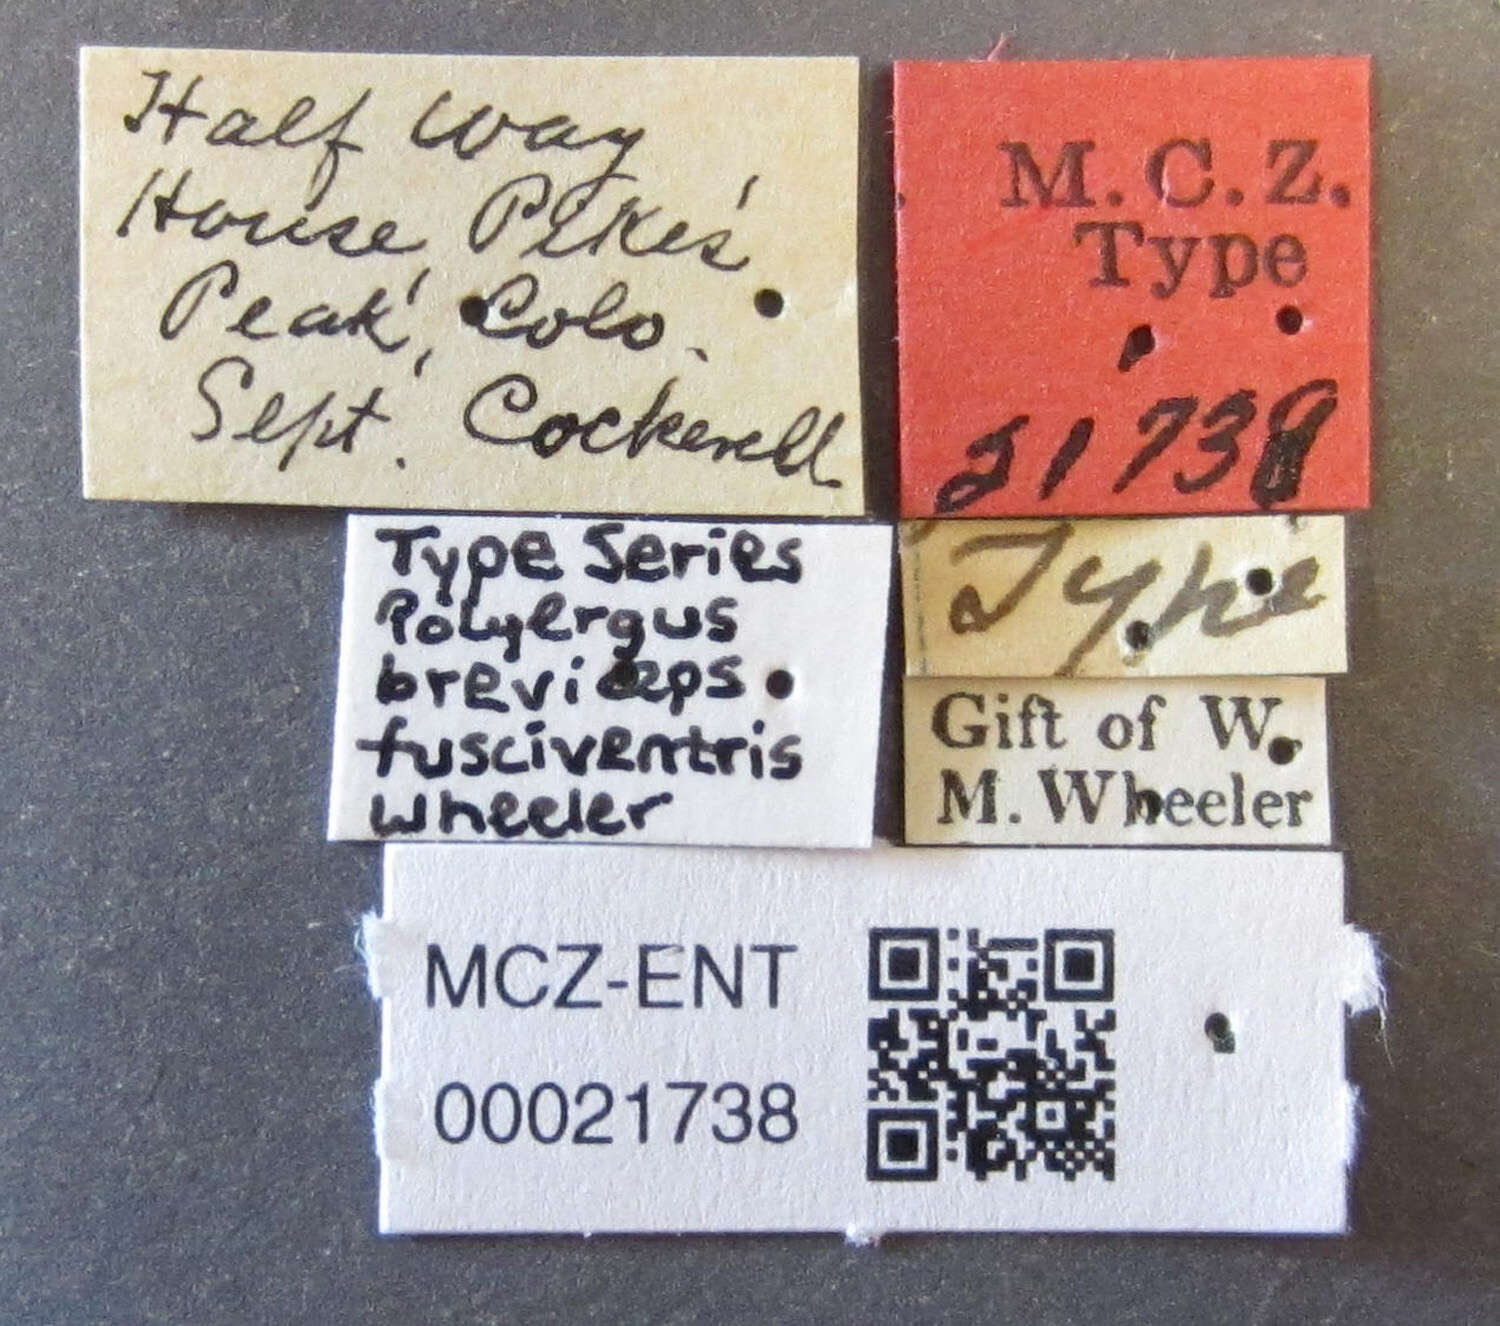 Half way
House Pikes'
Peak', Colo.
Sept. Cockerell
M.C.Z.
Type
21738
Type Series
Polyergus
breviceps
fusciventris
Wheeler
Type
Gift of W.
M. Wheeler
MCZ-ENT
00021738